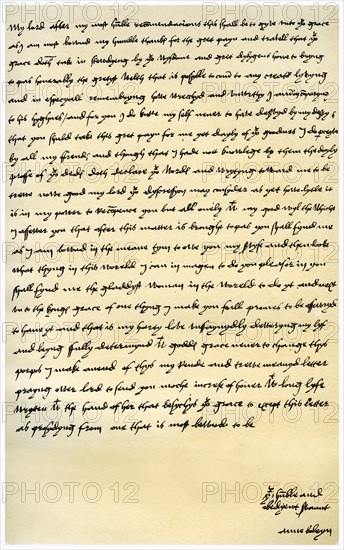 My lord after my most humble recomendations this shall be to gyve unto yr grace
as I am most bownd my humble thanks for the gret payn and travell that yr
grace doth take in stewdyng by yr wysdome and gret dylygens howe to bryng
to pas honerably the gretyst welth that is possible to com to any creator lyvyng
and in especyall remembryng howe wrecched and unworthy I am in comparyng
to his hyghnes and for you I do knowe my self never to have deservyd by my desertys
that you shuld take this gret payn for me yet dayly of yr goodnes I do perceyve
by all my frends and though that I hade not knowlege by them the dayly
proffe of yr deds doth declare yr words and wrytyng toward me to be
trewe nowe good my lord yr dyscressyon may consyder as yet how lytle it
is in my power to recompence you but all onely wt my good wyl the whiche
I assewer you that after this matter is brought to pas you shall fynd me
as I am bownd in the meane tym to owe you my servyse and then looke
what thyng in this woreld I can immagen to do you pleasor in you
shall fynd me the gladdyst woman in the woreld to do yt and next
unto the kyngs grace of one thyng I make you full promes to be assewryd
to have yt and that is my harty love unfaynydly deweryng my lyf
and beyng fully determynd wt goddes grace never to change thys
porpos I make an end of thys my reude and trewe meanyd letter
praying ower lord to send you moche increse of honer wt long lyfe
wrytten wt the hand of her that besychys yr grace to except this letter
as prosydyng from one that is most bownd to be
yr humble and
obedyent servant
anne boleyn
PHOTO 12